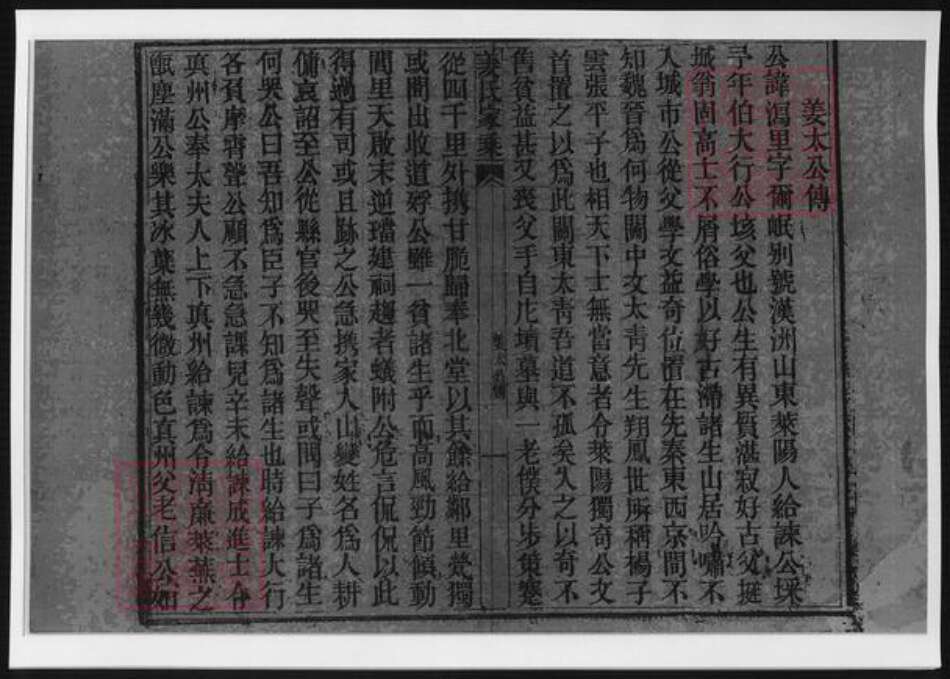 姜太公傳
公諱瀉里字爾岷别號漢洲山東萊陽人給諫公埰
子年伯大行公垓父也公生有異質湛寂好古父挺
城翁固高士不屑俗學以好古潛諸生山居吟嘯不
入城市公從父學文益奇位置在先秦東西京間不
知魏晉爲何物關中文太青先生翔鳳世所稱楊子
雲張平子也相天下士無當意者令萊陽獨奇公文
首置之以爲此關東太青吾道不孤矣久之以奇不
售貧益甚又喪父手自庀墳墓與一老僕分步策蹇
姜氏家乘
姜太公傳
一
從四千里外携甘脆歸奉北堂以其餘給鄰里煢獨
或閒出收道殍公雖一貧諸生乎而高風勁節傾動
閭里天啟末逆璫建祠趨者蟻附公危言侃侃以此
得過有司或且跡之公急携家入山變姓名爲人耕
傭哀詔至公從縣官後哭至失聲或聞曰子爲諸生
何哭公曰吾知爲臣子不知爲諸生也時給諫大行
各負摩霄聲公顧不急急課兒辛未給諫成進士令
真州公奉太夫人上下真州給諫爲令清廉萊蕪之
甑塵滿公樂其冰蘗無幾微動色真州父老信公如